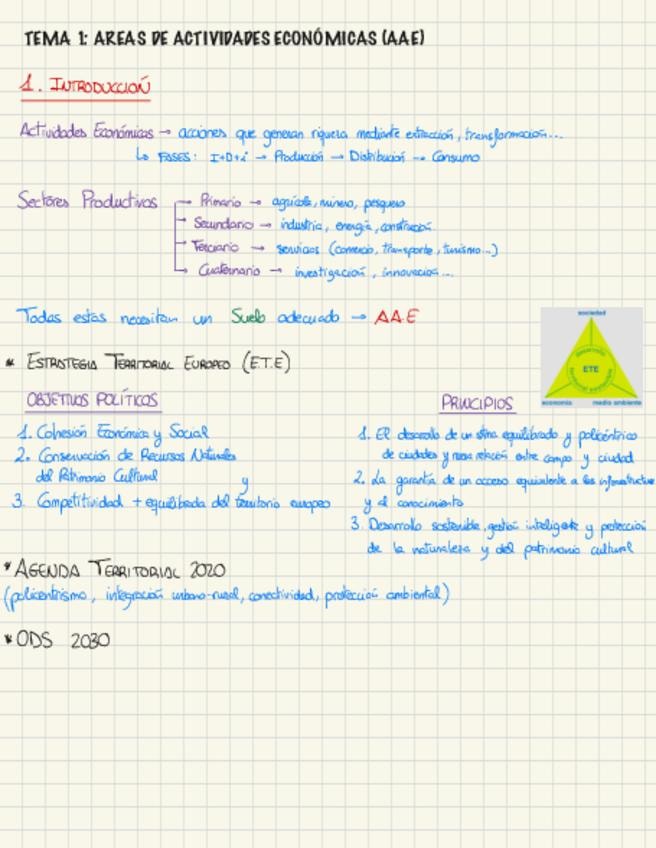 TEMA 1: AREAS DE ACTIVIDADES ECONÓMICAS (AAE)
1. INTRODUCCIÓN
Actividades Económicas → acciones que generan riqueza mediante extracción, transformación...
↳ FASES: I+D+i → Producción → Distribución → Consumo
Sectores Productivos
→ Primario → agrícola, minero, pesquero
→ Secundario → industria, energía, construcción.
→ Terciario → servicios (comercio, transporte, turismo...)
→ Cuaternario → investigación, innovación...
Todas estas necesitan un Suelo adecuado → AA.E
sociedad
desarrollo
ETE
economía medio ambiente
* ESTRATEGIA TERRITORIAL EUROPEO (E.T.E)
OBJETIVOS POLÍTICOS
1. Cohesión Económica y Social
2. Conservación de Recursos Naturales
y
del Patrimonio Cultural
3. Competitividad + equilibrada del territorio europeo
PRINCIPIOS
1. El desarrollo de un stma equilibrado y policéntrico
de ciudades y nueva relación entre campo y ciudad
2. La garantía de un acceso equivalente a las infraestructuras
y al conocimiento
3. Desarrollo sostenible, gestión inteligente y protección
de la naturaleza y del patrimonio cultural
* AGENDA TERRITORIAL 2020
(policentrismo, integración urbano-rural, conectividad, protección ambiental)
* ODS 2030